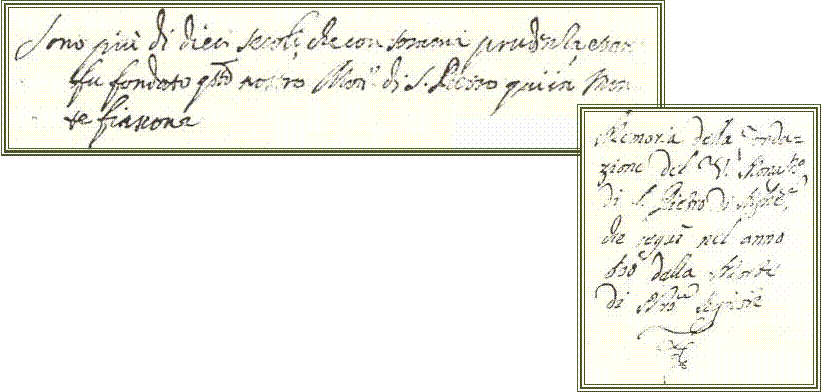 Sono più di dieci secoli, che con somma prudenza
fu fondato qsto nostro Monº di S. Pietro qui in Mon
te fiascone
Memoria della Fonda-
zione del V. Monastº
di S. Pietro di
che seguì nel anno
della Morte
di Nrô Signore